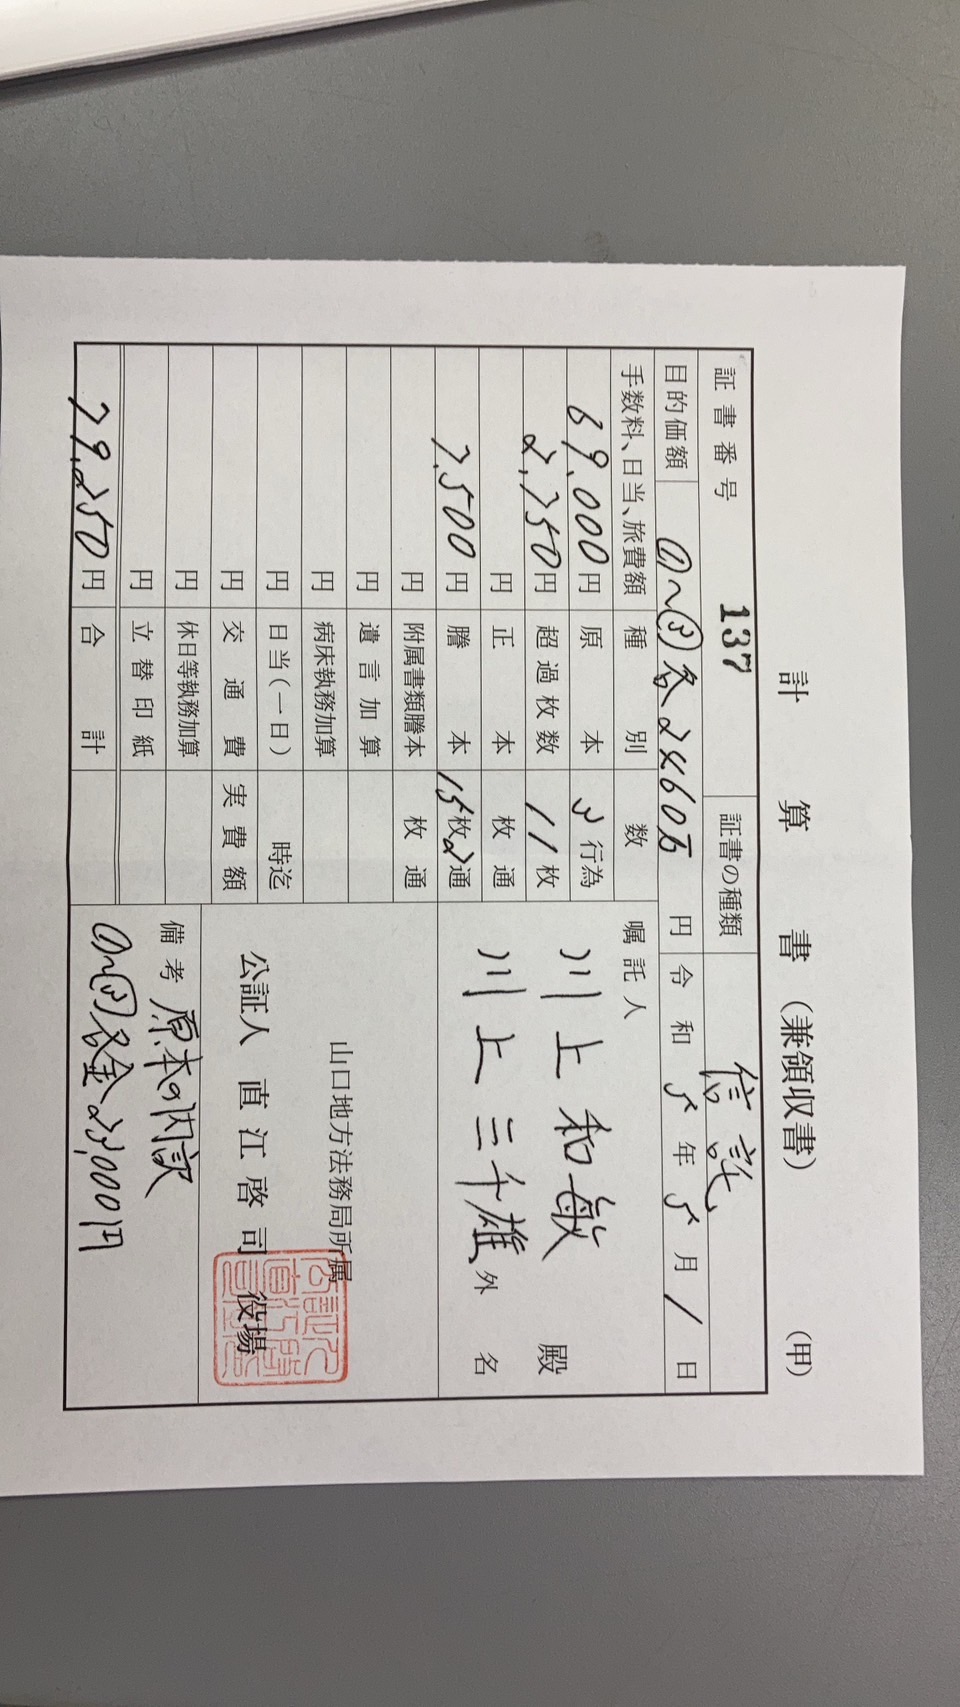 計算書(兼領収書)
(甲)
証書番号 137 証書の種類 信託
目的価額 ①~③各2460万円 令和5年5月1日
手数料、日当、旅費額 種別 数 嘱託人
69,000円 原本 3行為
2,750円 超過枚数 11枚
円 正本 枚通
7,500円 謄本 15枚2通
円 附属書類謄本 枚通
円 遺言加算
円 病床執務加算
円 日当(一日) 時迄
円 交通費 実費額
円 休日等執務加算
円 立替印紙
79,250円 合計
川上和敏 殿
川上三千雄 外 名
山口地方法務局所属
公証人 直江啓司 役場
備考 原本の内訳
①~③各金23,000円